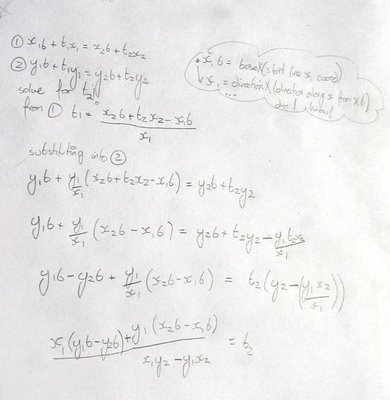 ① x₁b + t₁x₁ = x₂b + t₂x₂
② y₁b + t₁y₁ = y₂b + t₂y₂
solve for t₂
from ① t₁ = (x₂b + t₂x₂ - x₁b) / x₁
• x₁b = baseX (start line x₁ coord)
x₁ = directionX (direction along x from x₁b)
substituting into ②
y₁b + y₁/x₁ (x₂b + t₂x₂ - x₁b) = y₂b + t₂y₂
y₁b + y₁/x₁ (x₂b - x₁b) = y₂b + t₂y₂ - y₁t₂x₂/x₁
y₁b - y₂b + y₁/x₁ (x₂b - x₁b) = t₂ (y₂ - (y₁x₂/x₁))
(x₁(y₁b - y₂b) + y₁(x₂b - x₁b)) / (x₁y₂ - y₁x₂) = t₂